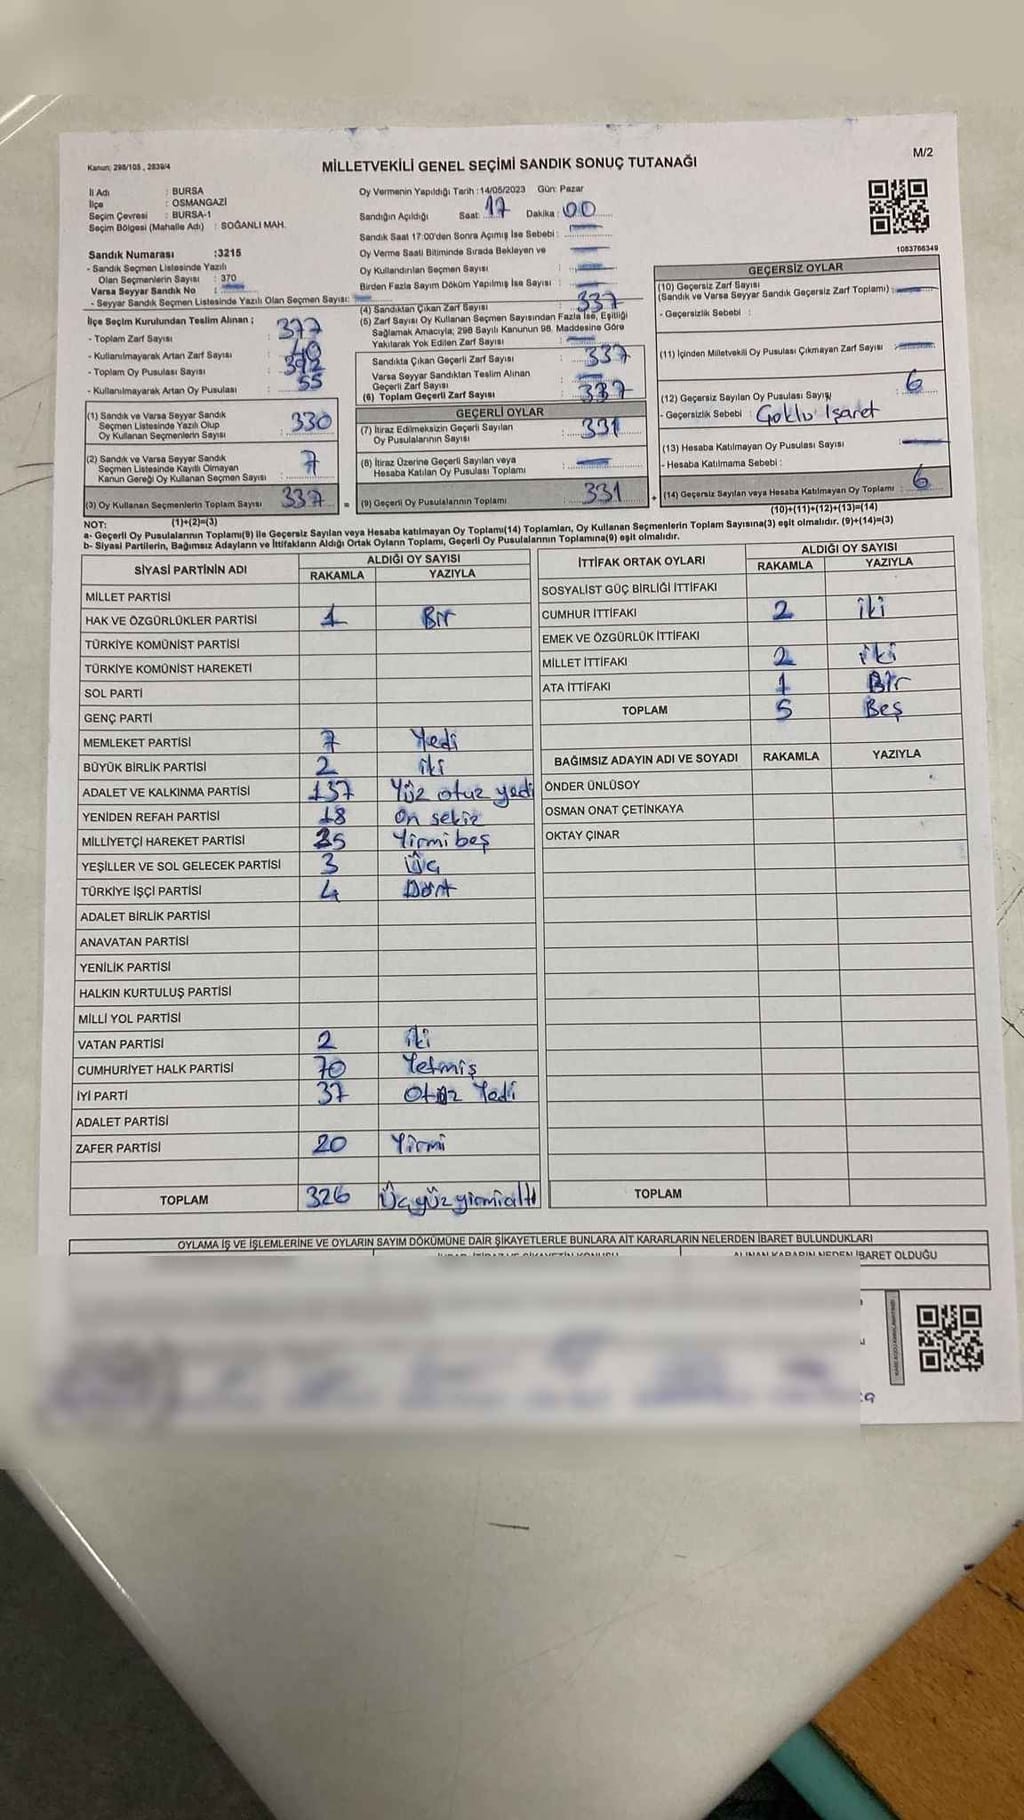 Kanun: 298/105 , 2839/4
MİLLETVEKİLİ GENEL SEÇİMİ SANDIK SONUÇ TUTANAĞI
M/2
İl Adı : BURSA
İlçe : OSMANGAZİ
Seçim Çevresi : BURSA-1
Seçim Bölgesi (Mahalle Adı) : SOĞANLI MAH.
Sandık Numarası :3215
- Sandık Seçmen Listesinde Yazılı
Olan Seçmenlerin Sayısı : 370
Varsa Seyyar Sandık No :
- Seyyar Sandık Seçmen Listesinde Yazılı Olan Seçmen Sayısı:
Oy Vermenin Yapıldığı Tarih :14/05/2023 Gün: Pazar
Sandığın Açıldığı Saat: 17 Dakika : 00
Sandık Saat 17:00'den Sonra Açımış İse Sebebi :
Oy Verme Saati Bitiminde Sırada Bekleyen ve
Oy Kullandırılan Seçmen Sayısı :
Birden Fazla Sayım Döküm Yapılmış İse Sayısı :
1083766349
İlçe Seçim Kurulundan Teslim Alınan ;
- Toplam Zarf Sayısı : 377
- Kullanılmayarak Artan Zarf Sayısı : 40
- Toplam Oy Pusulası Sayısı : 392
- Kullanılmayarak Artan Oy Pusulası : 55
(1) Sandık ve Varsa Seyyar Sandık
Seçmen Listesinde Yazılı Olup
Oy Kullanan Seçmenlerin Sayısı : 330
(2) Sandık ve Varsa Seyyar Sandık
Seçmen Listesinde Kayıtlı Olmayan
Kanun Gereği Oy Kullanan Seçmen Sayısı : 7
(3) Oy Kullanan Seçmenlerin Toplam Sayısı : 337
(1)+(2)=(3)
(4) Sandıktan Çıkan Zarf Sayısı : 337
(5) Zarf Sayısı Oy Kullanan Seçmen Sayısından Fazla İse, Eşitliği
Sağlamak Amacıyla; 298 Sayılı Kanunun 98. Maddesine Göre
Yakılarak Yok Edilen Zarf Sayısı :
Sandıkta Çıkan Geçerli Zarf Sayısı : 337
Varsa Seyyar Sandıktan Teslim Alınan
Geçerli Zarf Sayısı :
(6) Toplam Geçerli Zarf Sayısı : 337
GEÇERLİ OYLAR
(7) İtiraz Edilmeksizin Geçerli Sayılan
Oy Pusulalarının Sayısı : 331
(8) İtiraz Üzerine Geçerli Sayılan veya
Hesaba Katılan Oy Pusulası Toplamı :
= (9) Geçerli Oy Pusulalarının Toplamı : 331
GEÇERSİZ OYLAR
(10) Geçersiz Zarf Sayısı
(Sandık ve Varsa Seyyar Sandık Geçersiz Zarf Toplamı) :
- Geçersizlik Sebebi :
(11) İçinden Milletvekili Oy Pusulası Çıkmayan Zarf Sayısı :
(12) Geçersiz Sayılan Oy Pusulası Sayısı : 6
- Geçersizlik Sebebi : Çoklu İşaret
(13) Hesaba Katılmayan Oy Pusulası Sayısı :
- Hesaba Katılmama Sebebi :
+ (14) Geçersiz Sayılan veya Hesaba Katılmayan Oy Toplamı : 6
(10)+(11)+(12)+(13)=(14)
NOT:
a- Geçerli Oy Pusulalarının Toplamı(9) ile Geçersiz Sayılan veya Hesaba katılmayan Oy Toplamı(14) Toplamları, Oy Kullanan Seçmenlerin Toplam Sayısına(3) eşit olmalıdır. (9)+(14)=(3)
b- Siyasi Partilerin, Bağımsız Adayların ve İttifakların Aldığı Ortak Oyların Toplamı, Geçerli Oy Pusulalarının Toplamına(9) eşit olmalıdır.
SİYASİ PARTİNİN ADI ALDIĞI OY SAYISI
RAKAMLA YAZIYLA
MİLLET PARTİSİ
HAK VE ÖZGÜRLÜKLER PARTİSİ 1 Bir
TÜRKİYE KOMÜNİST PARTİSİ
TÜRKİYE KOMÜNİST HAREKETİ
SOL PARTİ
GENÇ PARTİ
MEMLEKET PARTİSİ 7 Yedi
BÜYÜK BİRLİK PARTİSİ 2 iki
ADALET VE KALKINMA PARTİSİ 137 Yüz otuz yedi
YENİDEN REFAH PARTİSİ 18 On sekiz
MİLLİYETÇİ HAREKET PARTİSİ 25 Yirmi beş
YEŞİLLER VE SOL GELECEK PARTİSİ 3 Üç
TÜRKİYE İŞÇİ PARTİSİ 4 Dört
ADALET BİRLİK PARTİSİ
ANAVATAN PARTİSİ
YENİLİK PARTİSİ
HALKIN KURTULUŞ PARTİSİ
MİLLİ YOL PARTİSİ
VATAN PARTİSİ 2 iki
CUMHURİYET HALK PARTİSİ 70 Yetmiş
İYİ PARTİ 37 Otuz Yedi
ADALET PARTİSİ
ZAFER PARTİSİ 20 Yirmi
TOPLAM 326 Üçyüzyirmialtı
İTTİFAK ORTAK OYLARI ALDIĞI OY SAYISI
RAKAMLA YAZIYLA
SOSYALİST GÜÇ BİRLİĞİ İTTİFAKI
CUMHUR İTTİFAKI 2 iki
EMEK VE ÖZGÜRLÜK İTTİFAKI
MİLLET İTTİFAKI 2 iki
ATA İTTİFAKI 1 Bir
TOPLAM 5 Beş
BAĞIMSIZ ADAYIN ADI VE SOYADI RAKAMLA YAZIYLA
ÖNDER ÜNLÜSOY
OSMAN ONAT ÇETİNKAYA
OKTAY ÇINAR
TOPLAM
OYLAMA İŞ VE İŞLEMLERİNE VE OYLARIN SAYIM DÖKÜMÜNE DAİR ŞİKAYETLERLE BUNLARA AİT KARARLARIN NELERDEN İBARET BULUNDUKLARI
ALINAN KARARIN NEDEN İBARET OLDUĞU